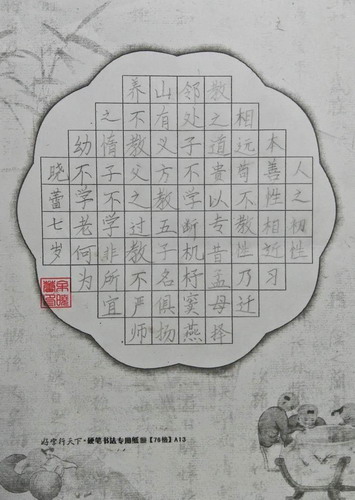 人之初性
本善性相近习
相远苟不教性乃迁
教之道贵以专昔孟母择
邻处子不学断机杼窦燕
山有义方教五子名俱扬
养不教父之过教不严师
之惰子不学非所宜
幼不学老何为
晓蕾七岁
好学行天下·硬笔书法专用纸【76格】A13